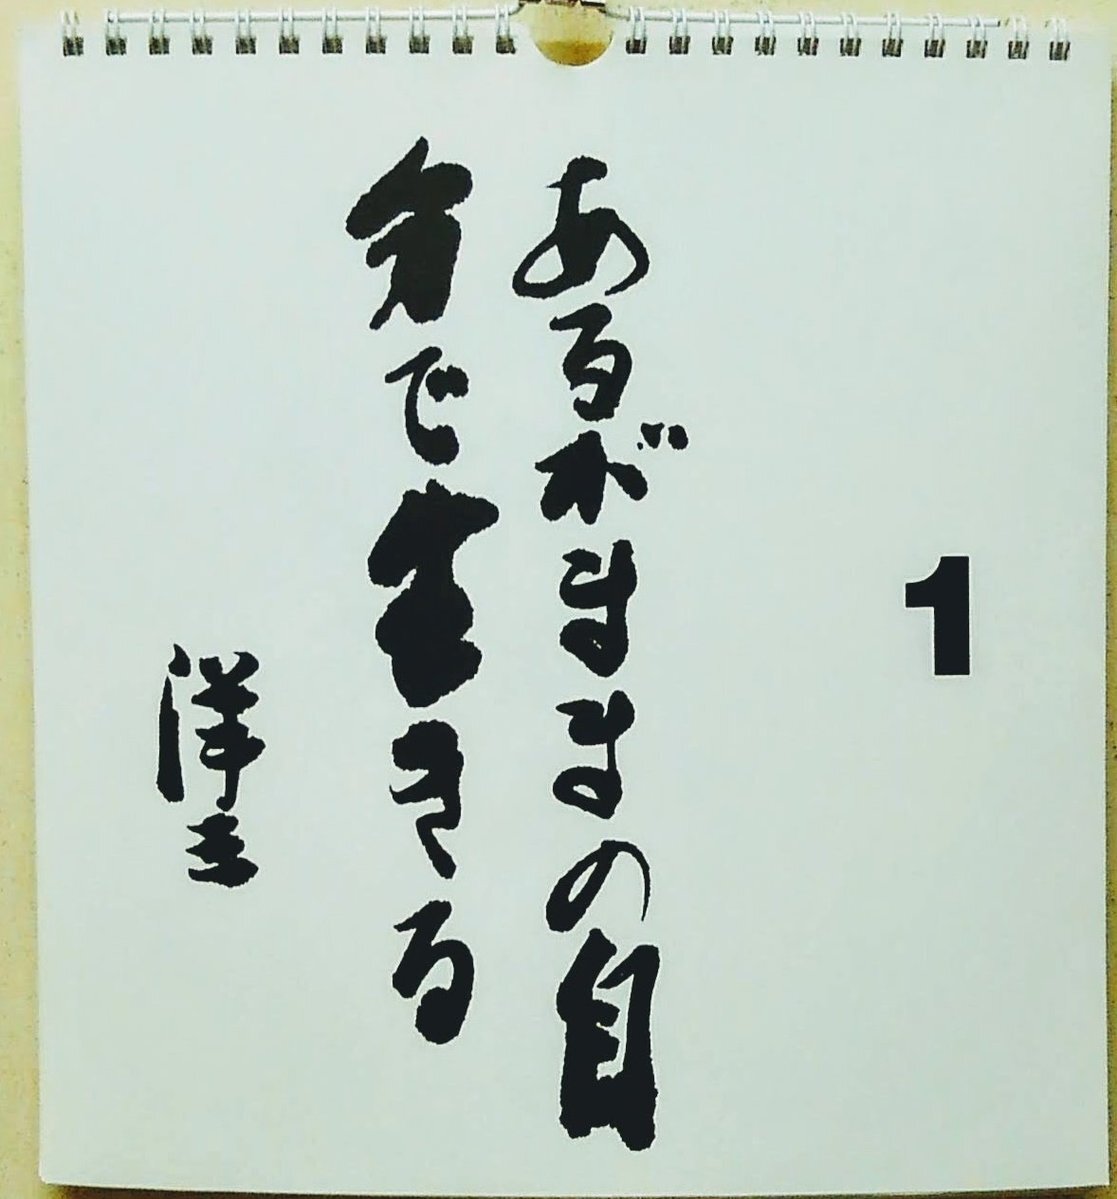 1
あるがままの自
分で生きる
洋三